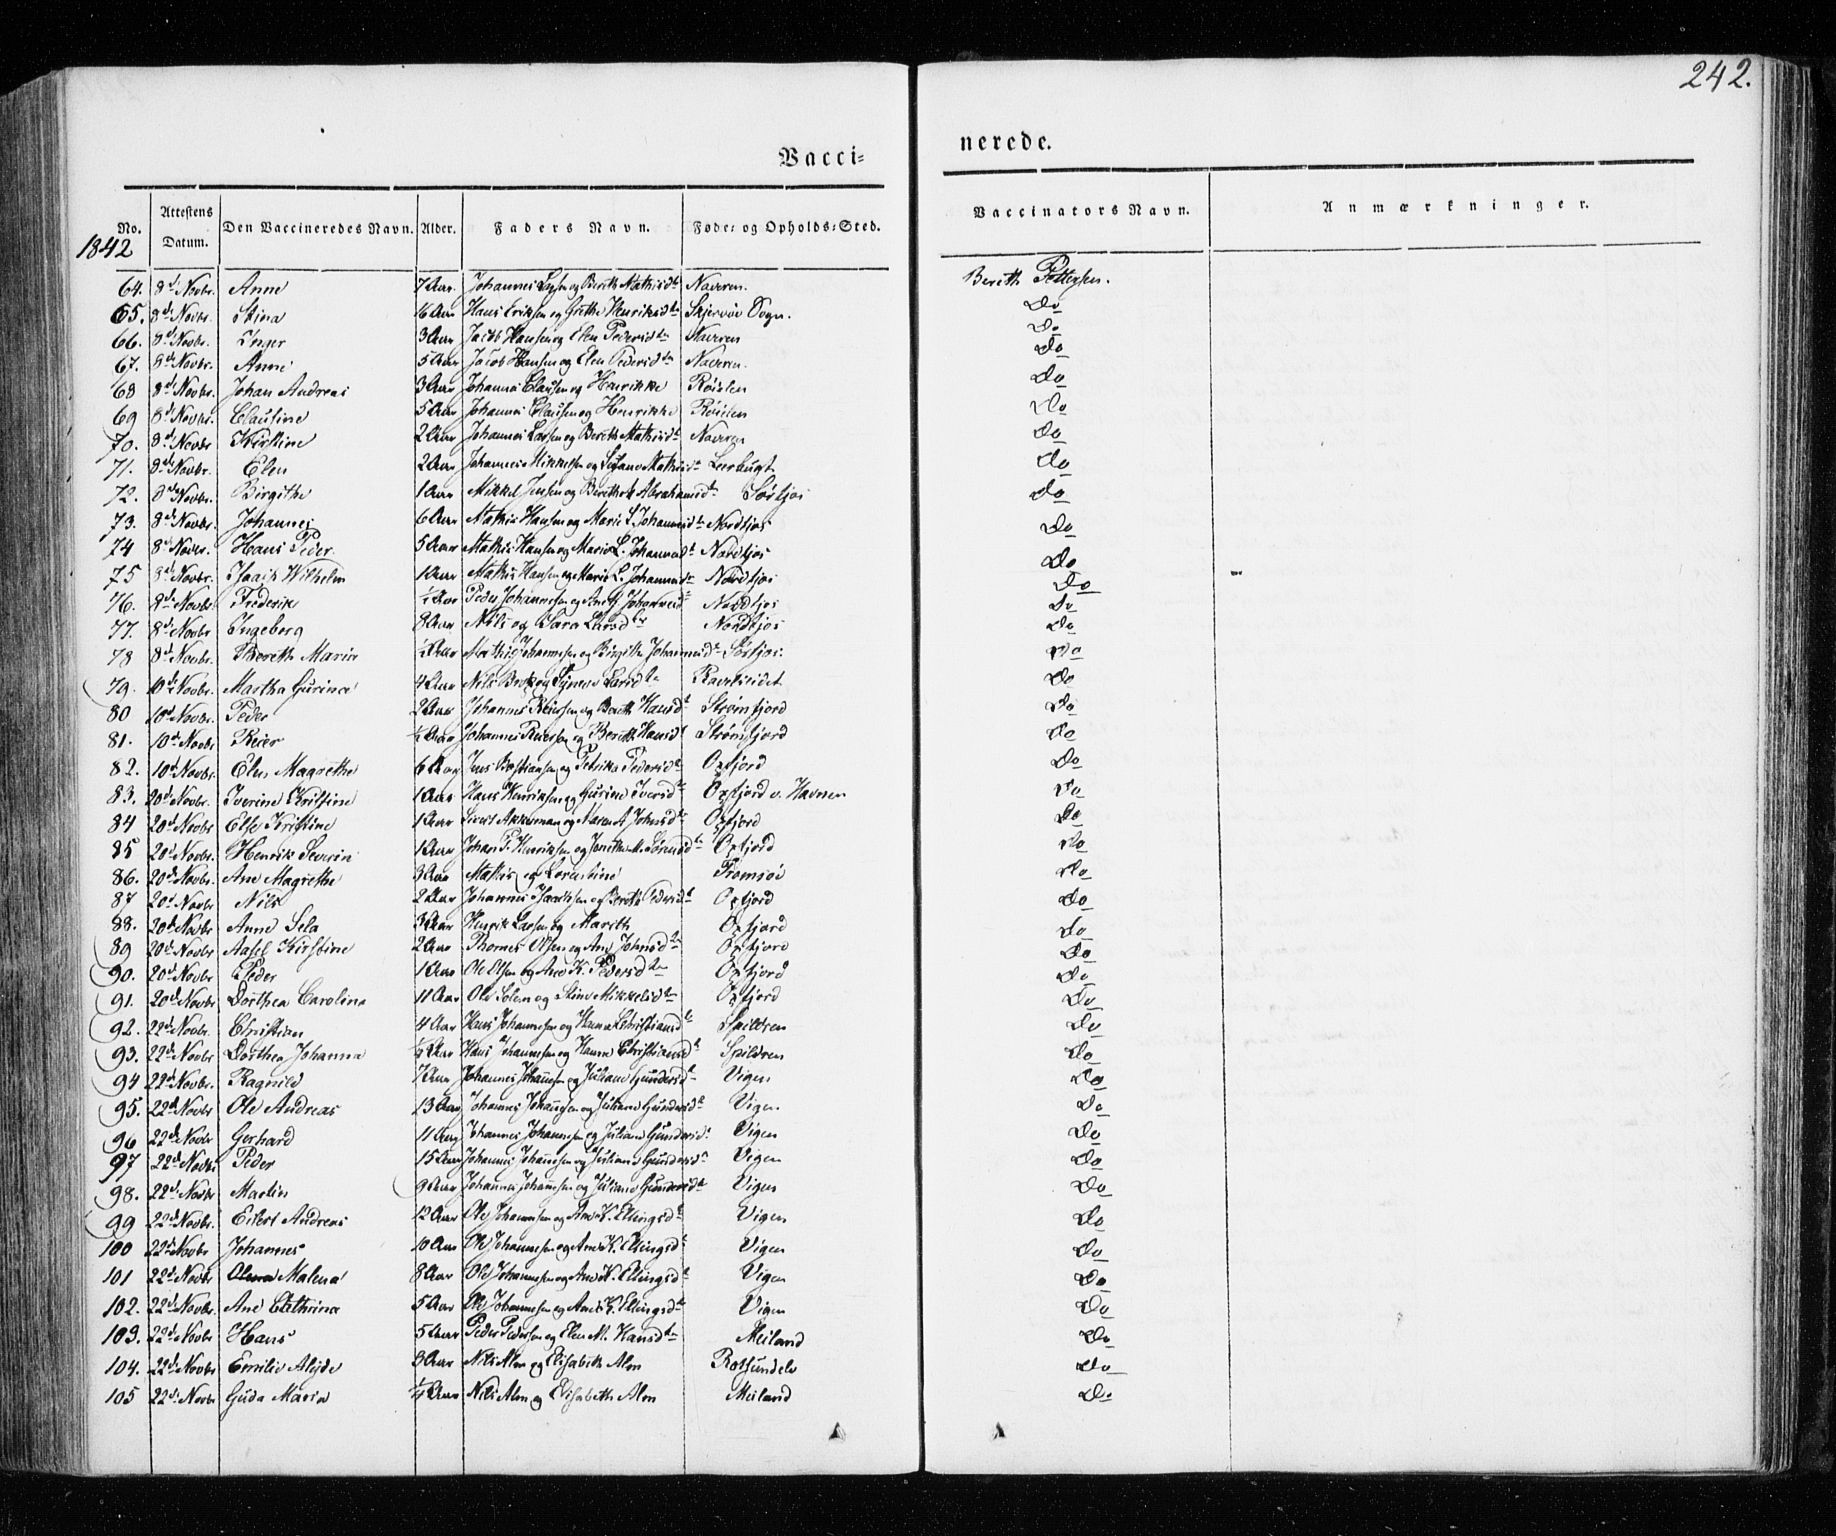 242.
Vacci= nerede.
No. Attestens Datum. Den Vaccineredes Navn. Alder. Faders Navn. Føde= og Opholds=Sted. Vaccinators Navn. Anmærkninger.
1842
64. 8d Novbr. Anne 7 Aar Johannes og Berith Mathisd Naveren. Berith Pettersen.
65. 8d Novbr. Stina 6 Aar Hans Eriksen og Grethe Henriksd Skjervøe Sogn. Do
66. 8d Novbr. Inger 3 Aar Jacob Hansen og Elen Pedersd Naveren Do
67. 8d Novbr. Anne 5 Aar Jacob Hansen og Elen Pedersd Naveren. Do
68 8d Novbr. Johan Andreas 3 Aar Johannes Clausen og Henrikke Røielen Do
69 8d Novbr. Claustine 5 Aar Johannes Clausen og Henrikke Røielen Do
70. 8d Novbr Kirstine 2 Aar Johannes Larsen og Berith Mathisd Naveren Do
71. 8d Novbr. Elen 2 Aar Johannes Mikkelsen og Mathisd Leerbugt Do
72. 8d Novbr. Birgithe 1 Aar Mikkel Jensen og Berethe Abrahamsd Sørtjos Do
73. 8d Novbr. Johannes 6 Aar Mathis Hansen og Marie L. Johannesd Nordtjos Do
74 8d Novbr. Hans Peder 5 Aar Mathis Hansen og Marie L. Johannesd Nordtjos Do
75 8d Novbr. Isach Wilhelm 1 Aar Mathis Hansen og Marie L. Johannesd Nordtjos Do
76. 8d Novbr. Frederik ½ Aar Peder Johannesen og Johannesd Nordtjos Do
77. 8d Novbr Ingeberg 8 Aar Nils og Sara Larsd Nordtjos Do
78 8d Novbr. Berith Maria ½ Aar Mathis Johannesen og Birgithe Johannesd Sørtjos. Do
79. 10d Novbr. Martha Gurine 4 Aar Nils og Larsd Do
80 10d Novbr. Peder 2 Aar Johannes Reiersen og Berith Hansd Strømfjord Do
81. 10d Novbr Reier ½ Aar Johannes Reiersen og Berith Hansd Strømfjord Do
82. 10d Novbr. Elen Magrethe 6 Aar Jens Bastiansen og Petrika Pedersd Oxfjord Do
83. 20d Novbr. Iverine Kristine 1 Aar Hans Henriksen og Gurine Iversd Oxfjord v. Havnen Do
84 20d Novbr Else Kristine 1 Aar Sivert Akkerman og Maren A. Johnsd Oxfjord Do
85 20d Novbr. Henrik Severin 1 Aar Johan P. Henriksen og M. Sørensd Oxfjord Do
86. 20d Novbr. Ane Magrethe 3 Aar Mathis og Lorentine Tromsøe Do
87 20d Novbr Nils 2 Aar Johannes Isachsen og Berith Pedersd Oxfjord Do
88. 20d Novbr Anne Sela 3 Aar Henrik Larsen og Marith Oxfjord Do
89 20d Novbr Aasel Kirstine 2 Aar Thomes Olsen og Ane Johnsd Oxfjord Do
90. 20d Novbr Peder 1 Aar Ole Olsen og Ane K. Pedersd Oxfjord Do
91. 20d Novbr Dorthea Carolina 11 Aar Ole Solem og Stine Mikkelsd Oxfjord Do
92. 22d Novbr. Christian 4 Aar Hans Johannesen og Hanna Christiansd Spildren Do
93. 22d Novbr. Dorthea Johanna ½ Aar Hans Johannesen og Hanna Christiansd Spildren Do
94 22d Novbr. Ragnild 7 Aar Johannes Johannesen og Juliane Gundersd Vigen Do
95. 22d Novbr Ole Andreas 13 Aar Johannes Johannesen og Juliane Gundersd Vigen Do
96 22d Novbr Gerhard 11 Aar Johannes Johannesen og Juliane Gundersd Vigen Do
97 22d Novbr Peder 15 Aar Johannes Johannesen og Juliane Gundersd Vigen Do
98. 22d Novbr Martin 9 Aar Johannes Johannesen og Juliane Gundersd Vigen Do
99 22d Novbr. Eilert Andreas 12 Aar Ole Johannesen og Ane K. Ellingsd Vigen Do
100 22d Novbr Johannes 10 Aar Ole Johannesen og Ane K. Ellingsd Vigen Do
101 22d Novbr Malena 8 Aar Ole Johannesen og Ane K. Ellingsd Vigen Do
102. 22d Novbr. Ane Cathrina 5 Aar Ole Johannesen og Ane K. Ellingsd Vigen Do
103. 22d Novbr Hans 5 Aar Peder Pedersen og Elen M. Hansd Meiland Do
104. 22d Novbr Emilie Alyde 3 Aar Nils Alm og Elisabeth Alm Rotsundelv Do
105 22d Novbr Guda Maria ¼ Aar Nils Alm og Elisabeth Alm Meiland Do